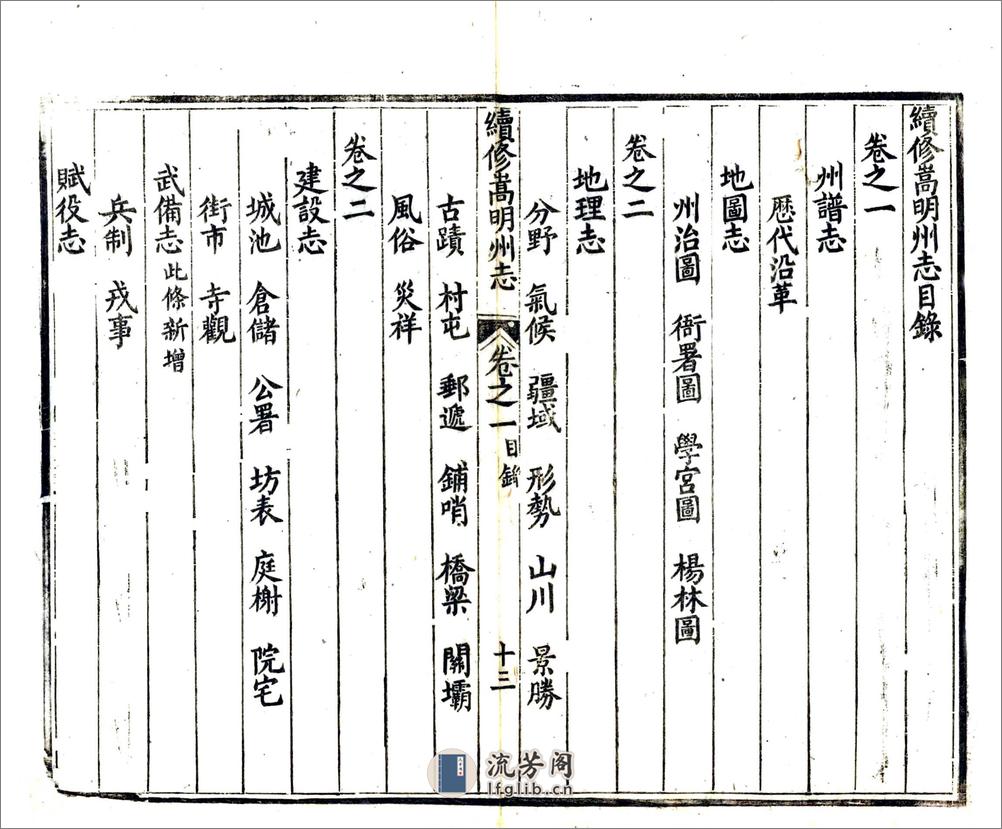 續修嵩明州志目錄
卷之一
州譜志
歷代沿革
地圖志
州治圖 衙署圖 學宮圖 楊林圖
卷之二
地理志
分野 氣候 疆域 形勢 山川 景勝
續修嵩明州志 卷之一 目錄 十三
古蹟 村屯 郵遞 鋪哨 橋梁 關壩
風俗 災祥
卷之二
建設志
城池 倉儲 公署 坊表 庭榭 院宅
街市 寺觀
武備志 此條新增
兵制 戎事
賦役志
流芳阁
lfglib.cn